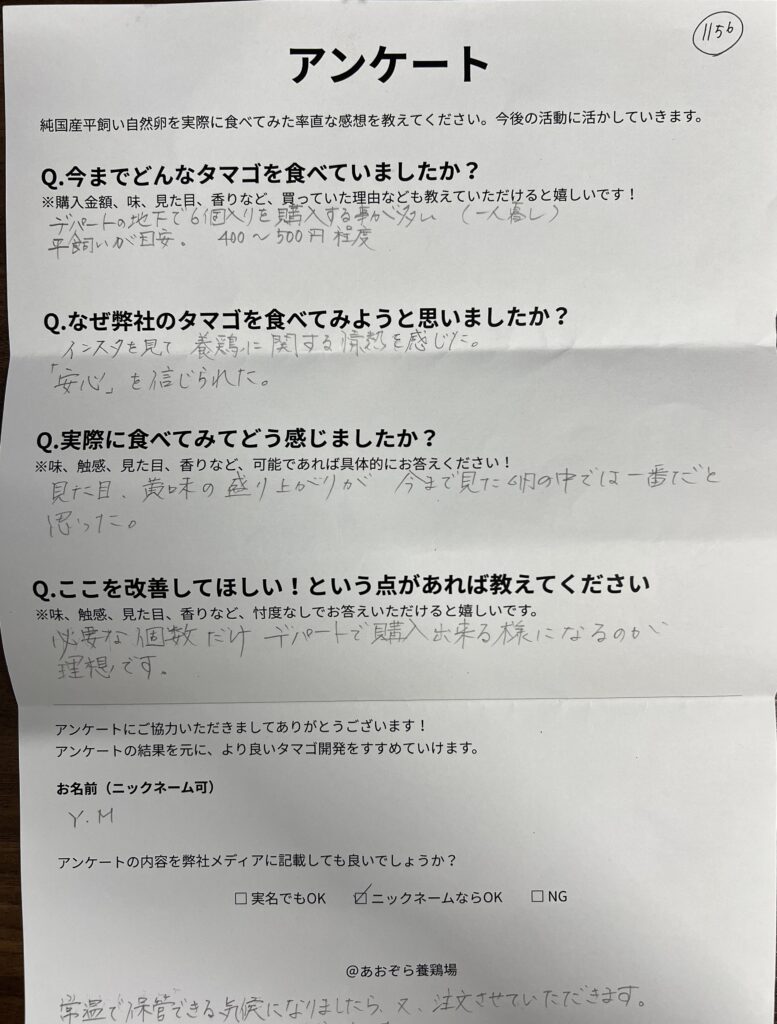 1156
アンケート
純国産平飼い自然卵を実際に食べてみた率直な感想を教えてください。今後の活動に活かしていきます。
Q.今までどんなタマゴを食べていましたか？
※購入金額、味、見た目、香りなど、買っていた理由なども教えていただけると嬉しいです！
デパートの地下で6個入りを購入する事が多い （一人暮し）
平飼いが目安。 400～500円程度
Q.なぜ弊社のタマゴを食べてみようと思いましたか？
インスタを見て 養鶏に関する情熱を感じた。
「安心」を信じられた。
Q.実際に食べてみてどう感じましたか？
※味、触感、見た目、香りなど、可能であれば具体的にお答えください！
見た目、黄味の盛り上がりが 今まで見た卵の中では一番だと
思った。
Q.ここを改善してほしい！という点があれば教えてください
※味、触感、見た目、香りなど、忖度なしでお答えいただけると嬉しいです。
必要な個数だけ デパートで購入出来る様になるのが
理想です。
アンケートにご協力いただきましてありがとうございます！
アンケートの結果を元に、より良いタマゴ開発をすすめていけます。
お名前（ニックネーム可）
Y.M
アンケートの内容を弊社メディアに記載しても良いでしょうか？
□ 実名でもOK ☑ ニックネームならOK □ NG
@あおぞら養鶏場
常温で保管できる気候になりましたら、又、注文させていただきます。